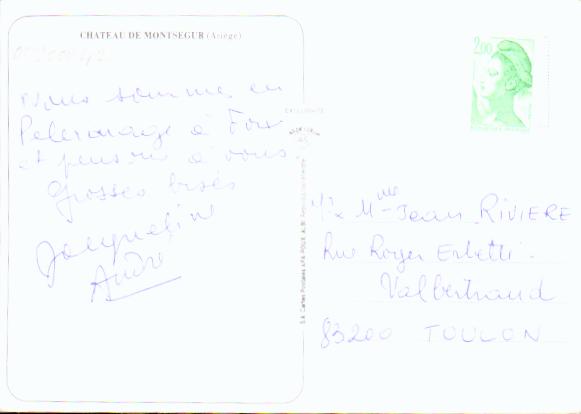 CHATEAU DE MONTSEGUR (Ariège)
Nous sommes en
Pelerinage à Foix
et pensons à vous.
Grosses bises
Jacqueline
André
2,00
Mr & Mme Jean RIVIERE
Rue Roger
Valbertrand
83200 TOULON